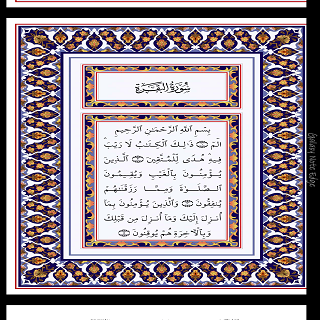 سُورَةُ البَقَرَةِ
بِسْمِ اللَّهِ الرَّحْمَٰنِ الرَّحِيمِ
الٓمٓ ۝ ذَٰلِكَ الْكِتَابُ لَا رَيْبَ
فِيهِ هُدًى لِّلْمُتَّقِينَ ۝ الَّذِينَ
يُؤْمِنُونَ بِالْغَيْبِ وَيُقِيمُونَ
الصَّلَوٰةَ وَمِمَّا رَزَقْنَٰهُمْ
يُنفِقُونَ ۝ وَالَّذِينَ يُؤْمِنُونَ بِمَا
أُنزِلَ إِلَيْكَ وَمَا أُنزِلَ مِن قَبْلِكَ
وَبِالْآخِرَةِ هُمْ يُوقِنُونَ ۝